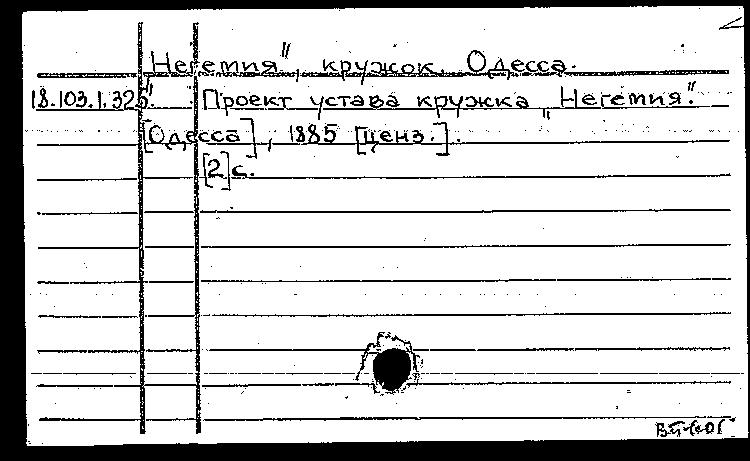 „Негемия", кружок. Одесса.
18.103.1.325. Проект устава кружка „Негемия".
[Одесса], 1885 [ценз.].
[2] с.